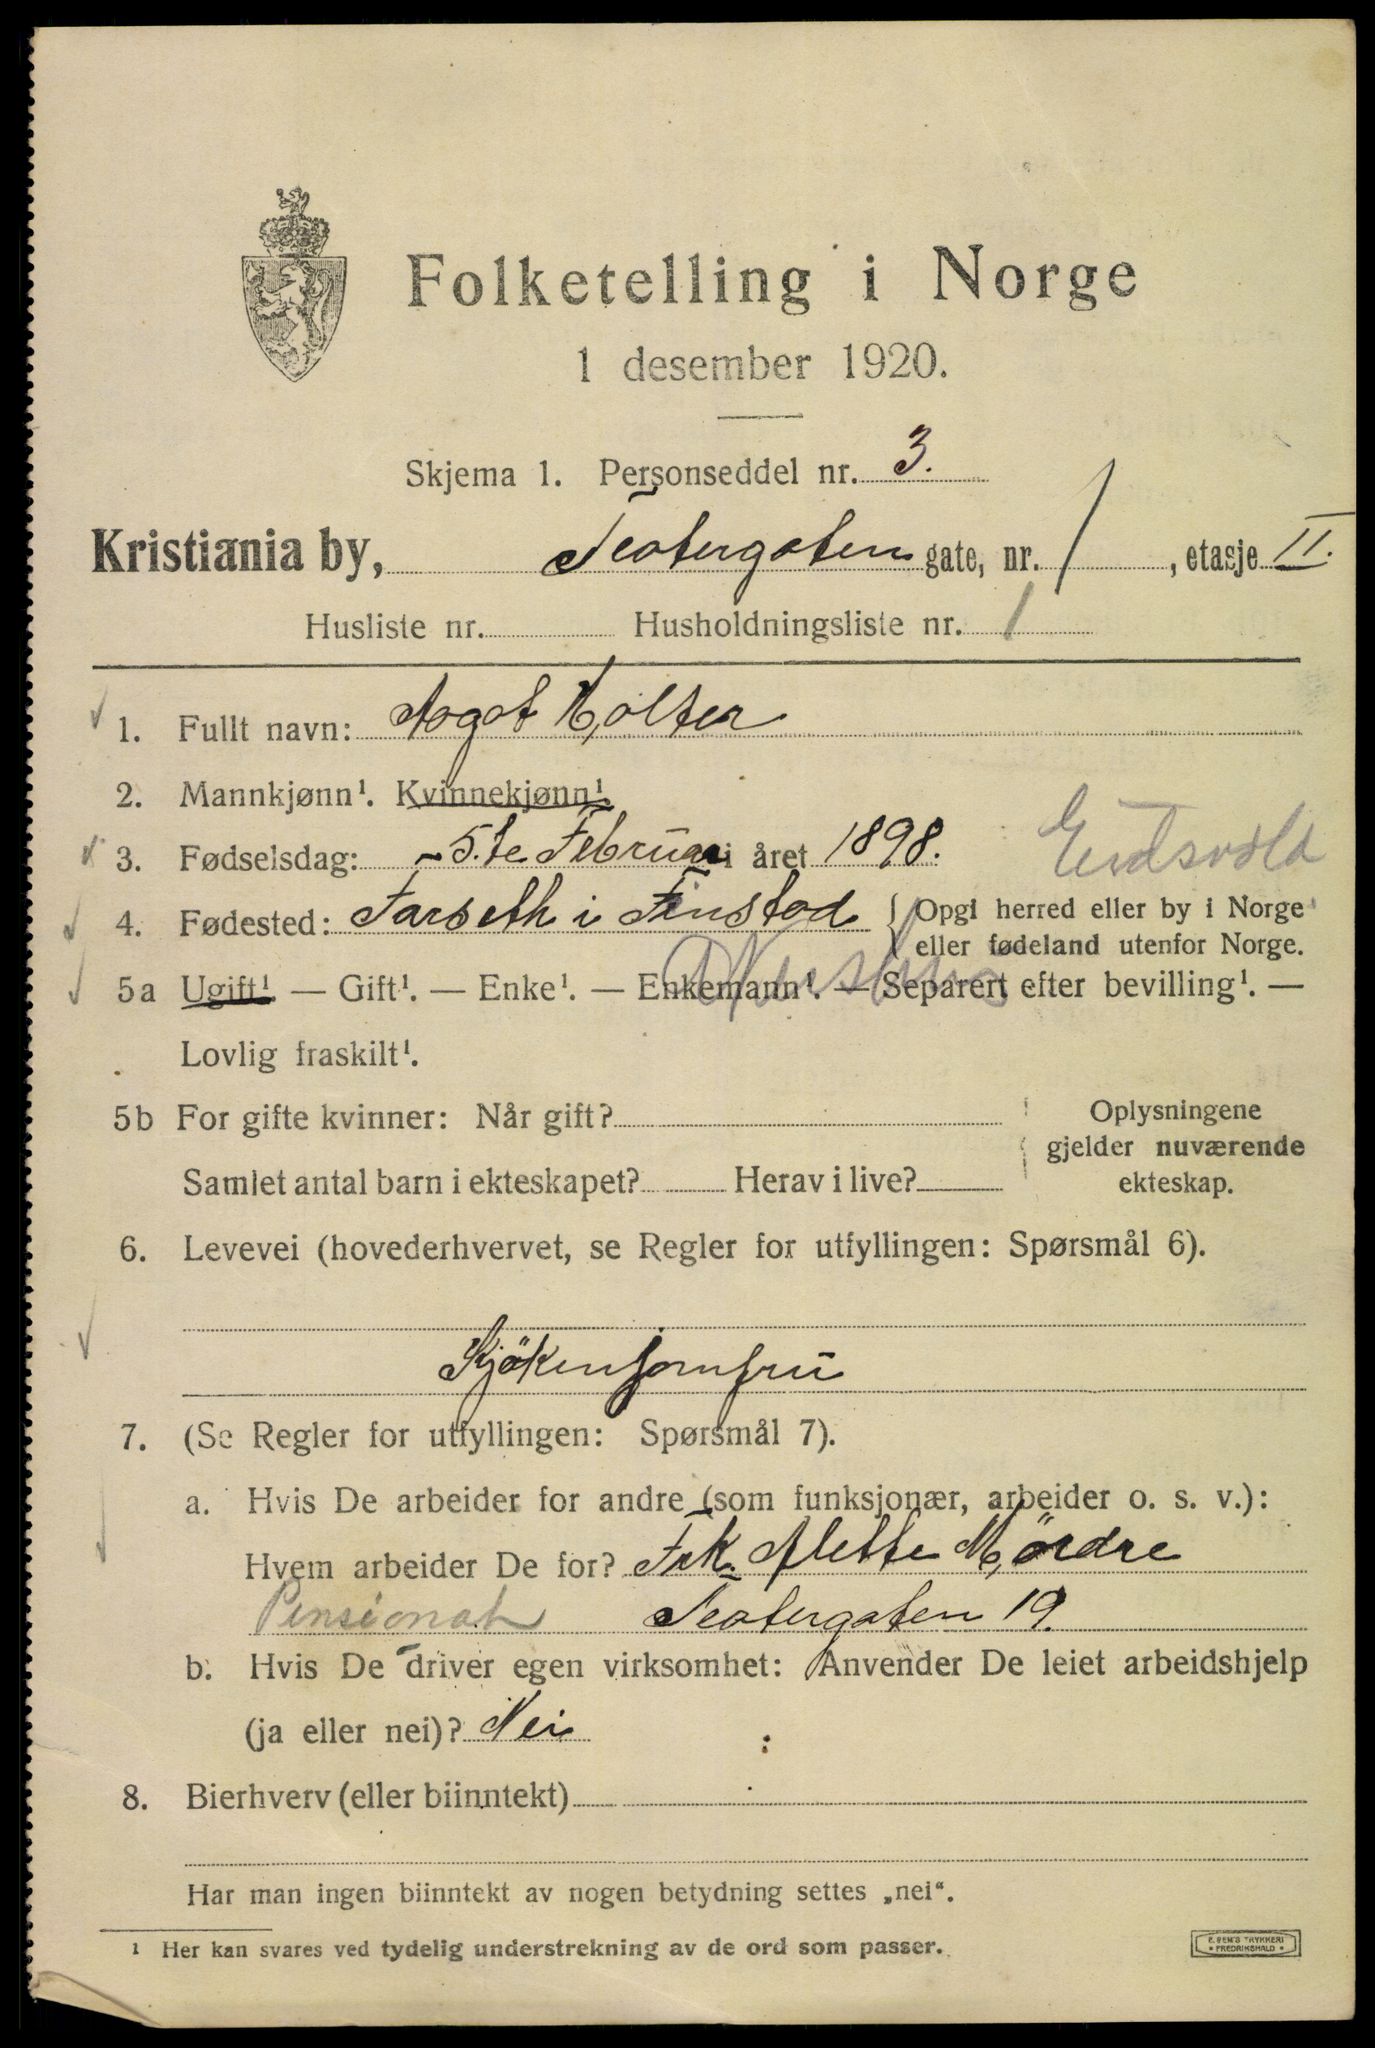 Folketelling i Norge
1 desember 1920.
Skjema 1. Personseddel nr. 3.
Kristiania by, Teatergaten gate, nr. 1, etasje II.
Husliste nr. Husholdningsliste nr. 1
1. Fullt navn: Aagot Holter
2. Mannkjønn¹. Kvinnekjønn¹.
3. Fødselsdag: 5.te Februar i året 1898. Eidsvold
4. Fødested: Farseth i Finstad { Opgi herred eller by i Norge
eller fødeland utenfor Norge.
Akershus
5a Ugift¹. — Gift¹. — Enke¹. — Enkemann¹. — Separert efter bevilling¹. —
Lovlig fraskilt¹.
5b For gifte kvinner: Når gift? Oplysningene
gjelder nuværende
Samlet antal barn i ekteskapet? Herav i live? ekteskap.
6. Levevei (hovederhvervet, se Regler for utfyllingen: Spørsmål 6).
Kjökenjomfru
7. (Se Regler for utfyllingen: Spørsmål 7).
a. Hvis De arbeider for andre (som funksjonær, arbeider o. s. v.):
Hvem arbeider De for? Frk. Mette Mördre
Pensionat Teatergaten 19.
b. Hvis De driver egen virksomhet: Anvender De leiet arbeidshjelp
(ja eller nei)? Nei
8. Bierhverv (eller biinntekt)
Har man ingen biinntekt av nogen betydning settes „nei“.
¹ Her kan svares ved tydelig understrekning av de ord som passer.
E. SEM'S TRYKKERI
* FREDRIKSHALD *